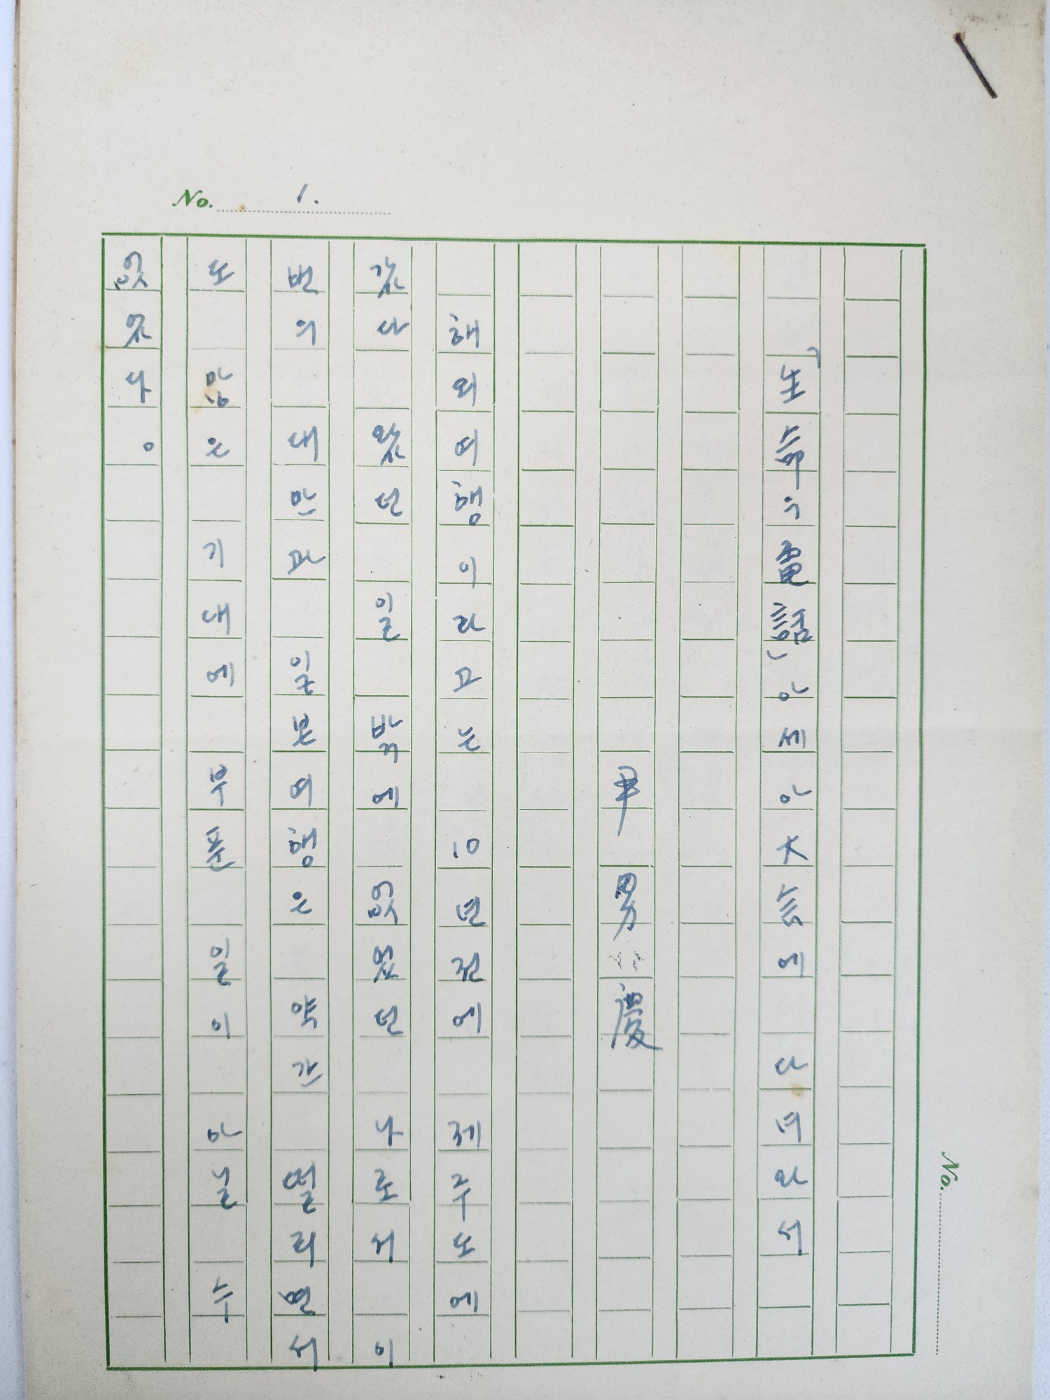 No. 1.
「生命의電話」아세아大会에 다녀와서
尹男慶
해외여행이라고는 10년전에 제주도에
갔다 왔던 일 밖에 없었던 나로서 이
번의 대만과 일본여행은 약간 떨리면서
도 많은 기대에 부푼 일이 아닐 수
없었다。
No.